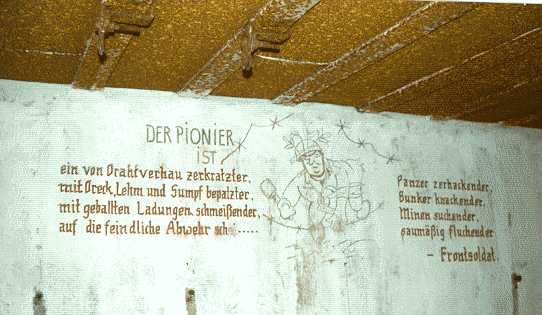 DER PiONiER
iST
ein von Drahtverhau zerkratzter,
mit Dreck, Lehm und Sumpf bepatzter,
mit geballten Ladungen schmeißender,
auf die feindliche Abwehr sch.....
Panzer zerhackender,
Bunker knackender,
Minen suchender,
saumäßig fluchender
- Frontsoldat.